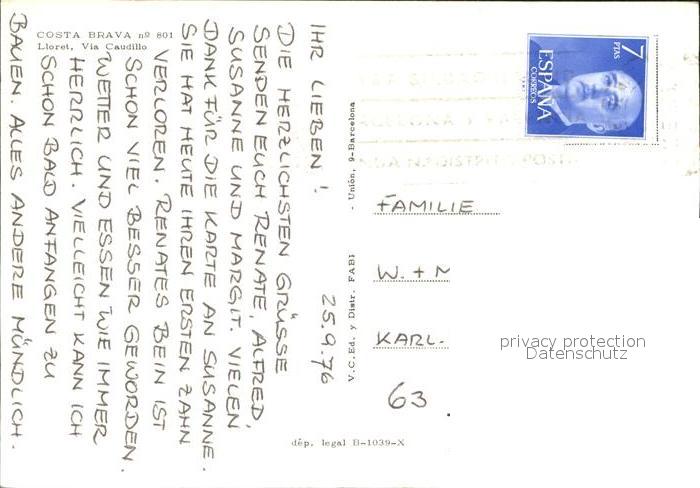 COSTA BRAVA nº 801
Lloret, Via Caudillo
IHR LIEBEN! 25.9.76
DIE HERZLICHSTEN GRÜSSE
SENDEN EUCH RENATE, ALFRED,
SUSANNE UND MARGIT. VIELEN
DANK FÜR DIE KARTE AN SUSANNE.
SIE HAT HEUTE IHREN ERSTEN ZAHN
VERLOREN. RENATES BEIN IST
SCHON VIEL BESSER GEWORDEN.
WETTER UND ESSEN WIE IMMER
HERRLICH. VIELLEICHT KANN ICH
SCHON BALD ANFANGEN ZU
BAUEN ALLES ANDERE MÜNDLICH.
V.C.Ed. y Distr. FABI - Unión, 9-Barcelona
dép. legal B-1039-X
7
PTAS
ESPAÑA
CORREOS
FAMILIE
W. + M
KARL.
63
privacy protection
Datenschutz